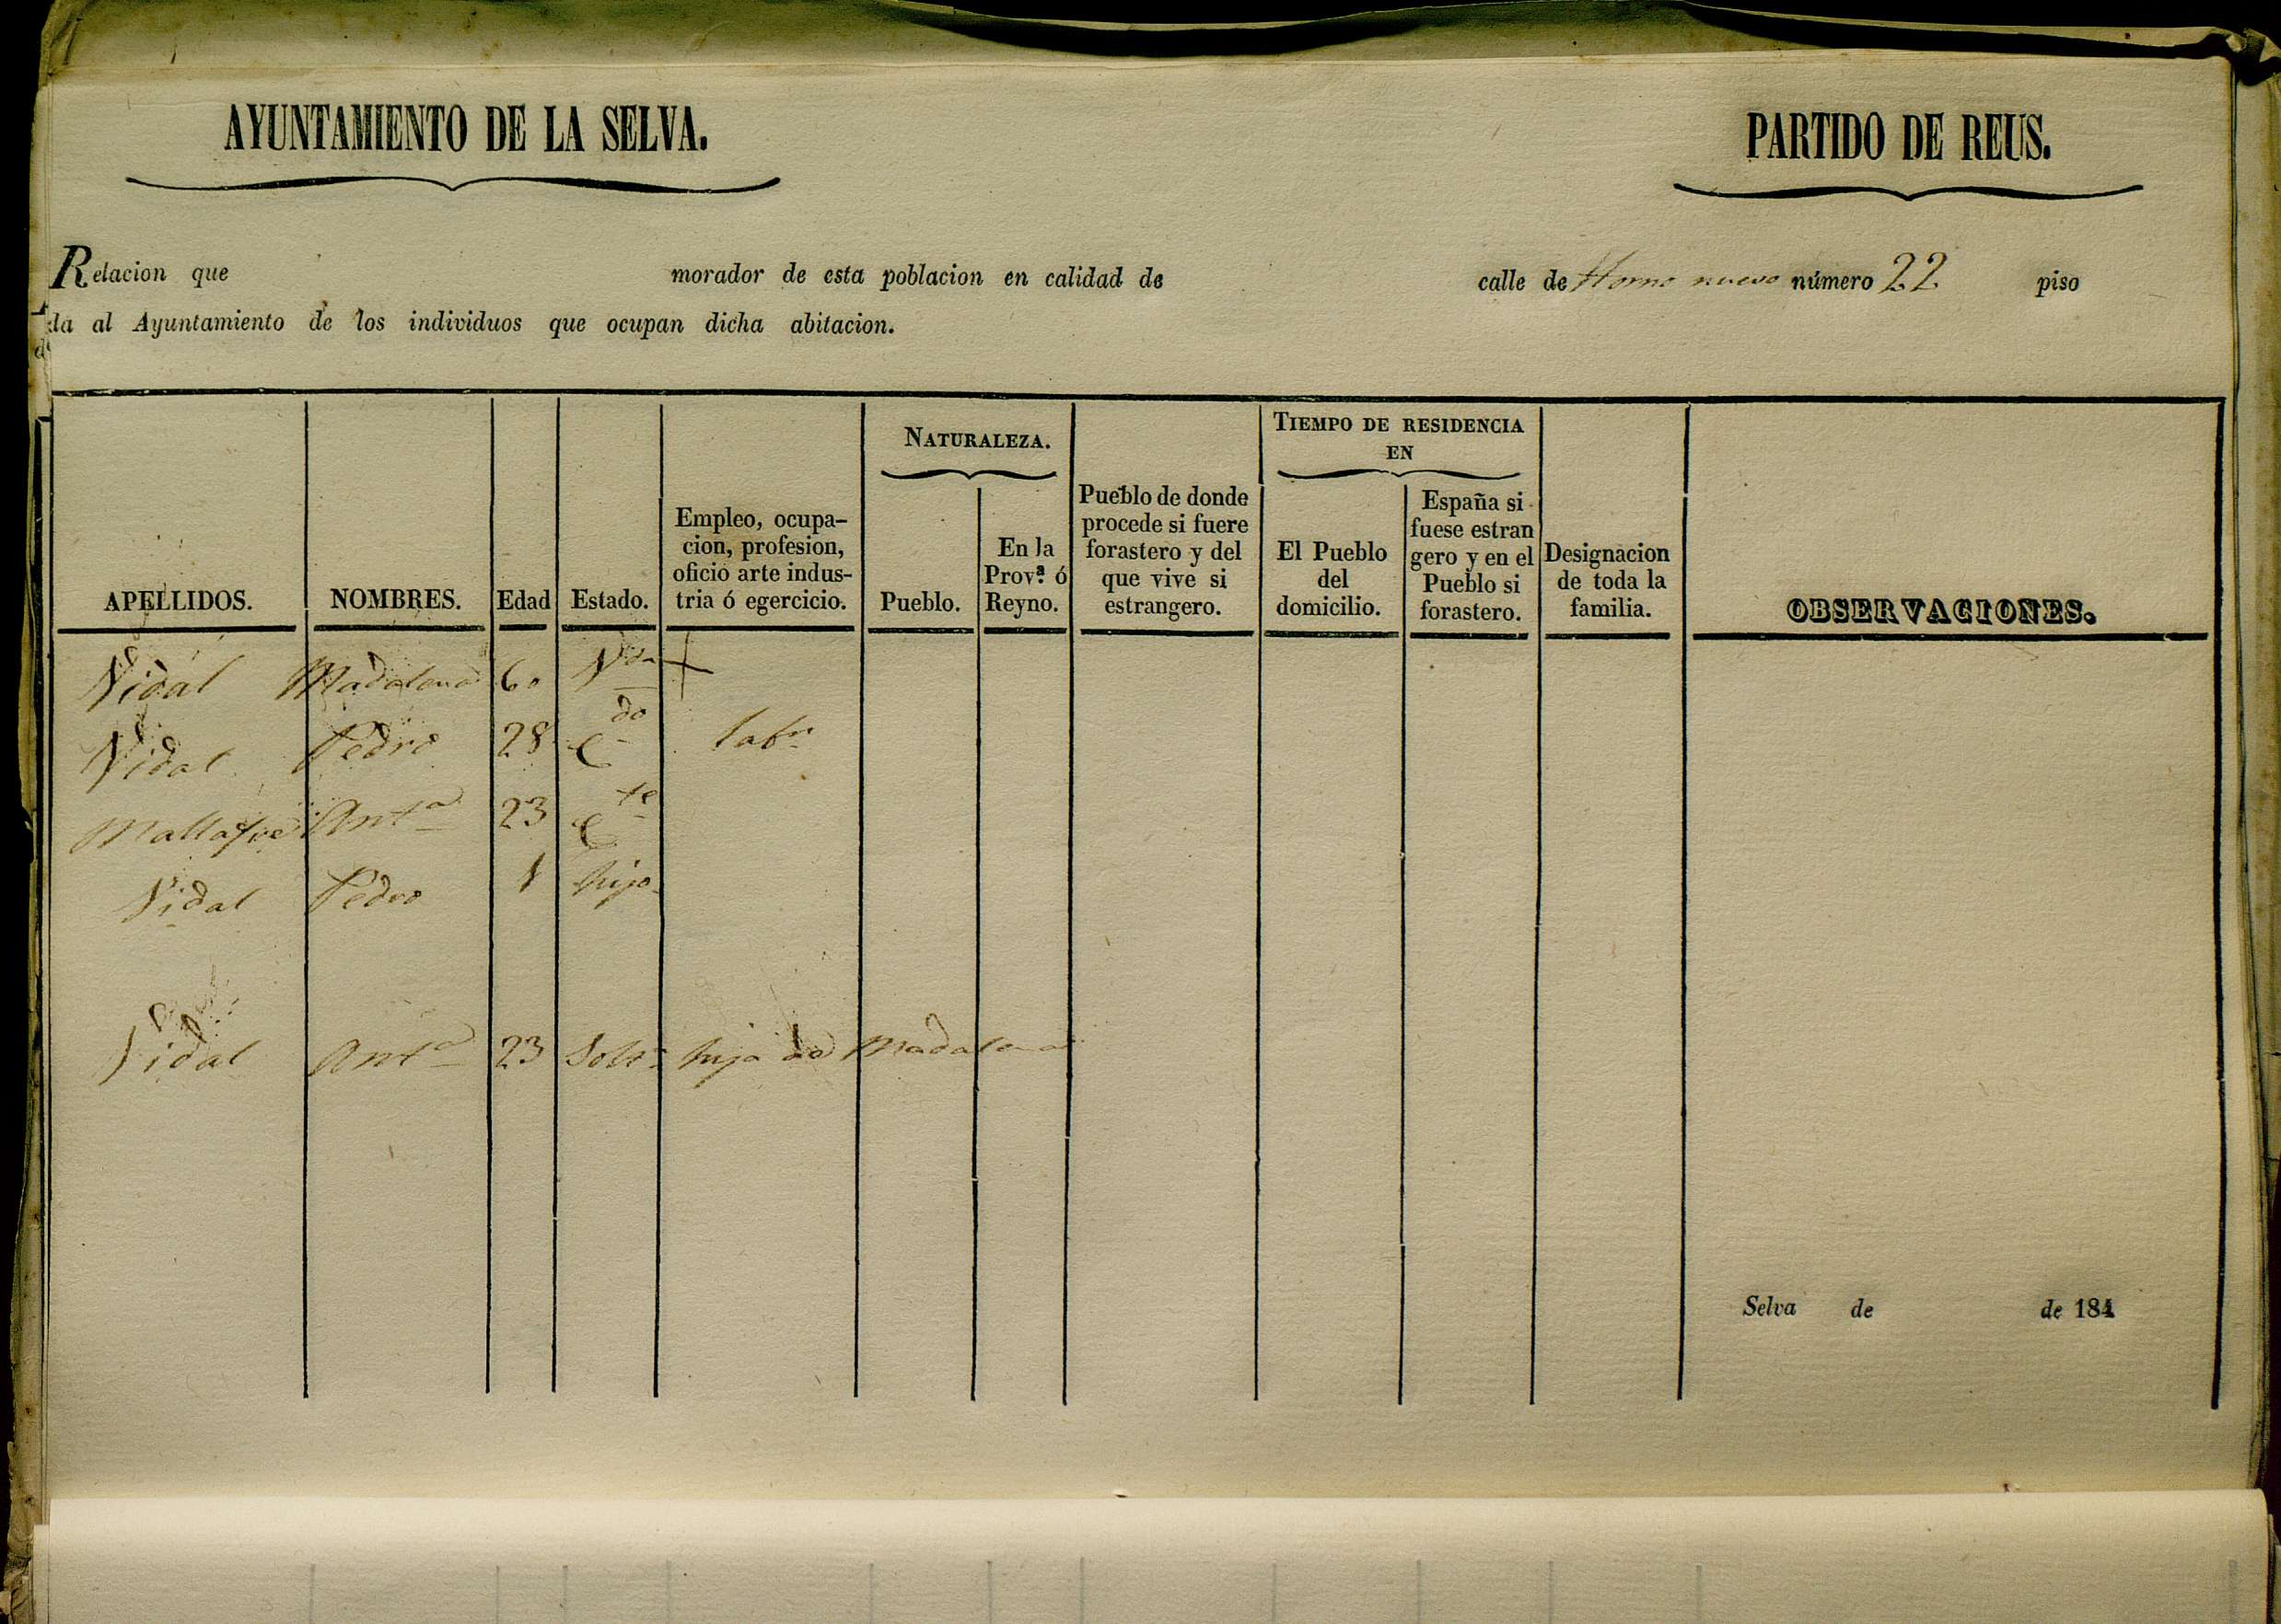 AYUNTAMIENTO DE LA SELVA.
PARTIDO DE REUS.
Relacion que morador de esta poblacion en calidad de calle de Horno nuevo número 22 piso
da al Ayuntamiento de los individuos que ocupan dicha abitacion.
APELLIDOS.
NOMBRES.
Edad
Estado.
Empleo, ocupa-
cion, profesion,
oficio arte indus-
tria ó egercicio.
NATURALEZA.
Pueblo.
En la
Prov.ª ó
Reyno.
Pueblo de donde
procede si fuere
forastero y del
que vive si
estrangero.
TIEMPO DE RESIDENCIA
EN
El Pueblo
del
domicilio.
España si
fuese estran
gero y en el
Pueblo si
forastero.
Designacion
de toda la
familia.
OBSERVACIONES.
Vidal Madalena 60 Vda
Vidal Pedro 28 Cdo labr
Mallafre Anta 23 Cte
Vidal Pedro 1 hijo
Vidal Anta 23 Solt hija de Madalena
Selva de de 184